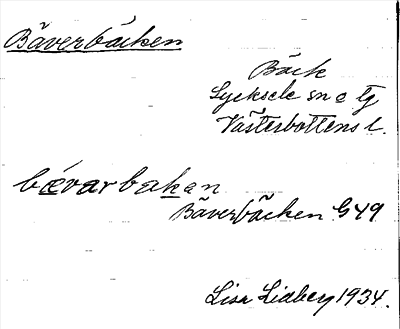 Bäverbäcken
Bäck
Lycksele sn o tg
Västerbottens l.
bévarbakan
Bäverbäcken G49
Lisa Lidberg 1934.